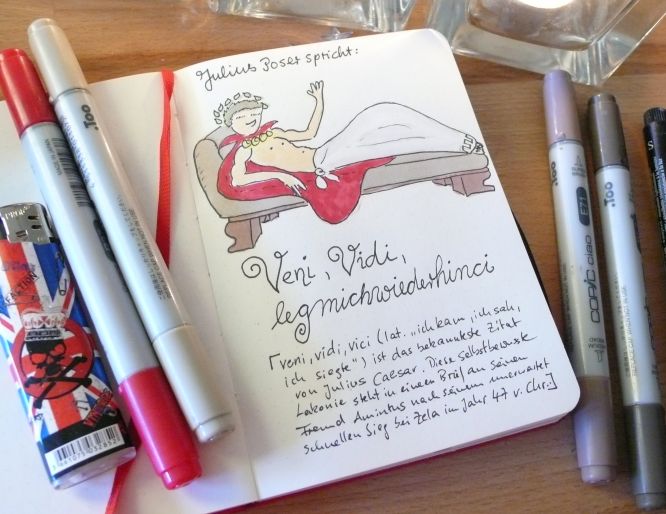 Julius Boser spricht:
Veni, Vidi,
legmichwiederhinci
[veni, vidi, vici (lat. „ich kam, ich sah,
ich siegte“) ist das bekannteste Zitat
von Julius Caesar. Diese selbstbewusste
Lakonie steht in einem Brief an seinen
Freund Amintus nach seinem unerwartet
schnellen Sieg bei Zela im Jahr 47 v. Chr.]
.too
.too
.too
.too
E71
COPIC ciao